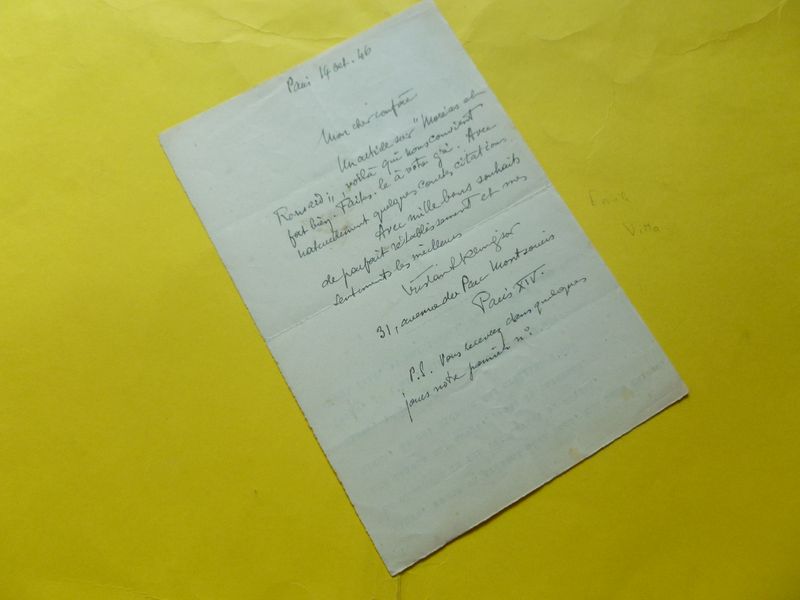 Paris 14 oct. 46
Mon cher confrère
Un article sur "Moréas et
Ronsard", voilà qui nous convient
fort bien. Faites-le à votre gré. Avec
naturellement quelques courtes citations
Avec mille bons souhaits
de parfait rétablissement et mes
sentiments les meilleurs
Tristan Klingsor
31, avenue du Parc Montsouris
Paris XIV.
P.S. Vous recevrez dans quelques
jours notre premier n°.